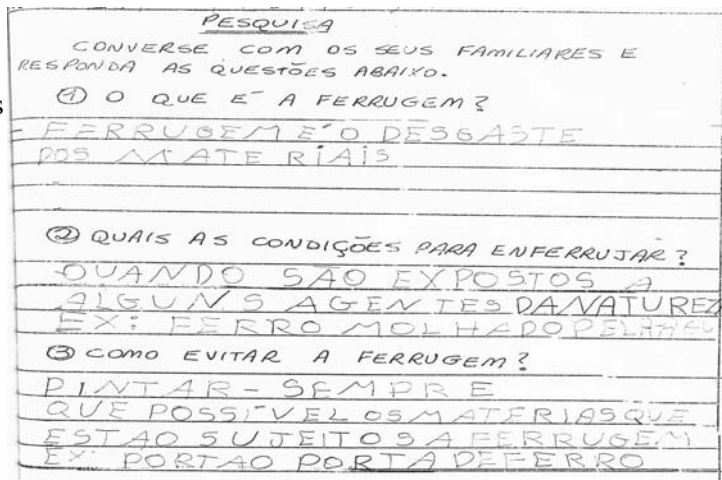 PESQUISA
CONVERSE COM OS SEUS FAMILIARES E
RESPONDA AS QUESTÕES ABAIXO.
① O QUE É A FERRUGEM?
FERRUGEM É O DESGASTE
DOS MATERIAIS
② QUAIS AS CONDIÇÕES PARA ENFERRUJAR?
QUANDO SÃO EXPOSTOS A
ALGUNS AGENTES DA NATUREZ
EX: FERRO MOLHADO PELA
③ COMO EVITAR A FERRUGEM?
PINTAR - SEMPRE
QUE POSSÍVEL OS MATERIAS QUE
ESTAO SUJEITOS A FERRUGEM
EX: PORTAO PORTA DE FERRO